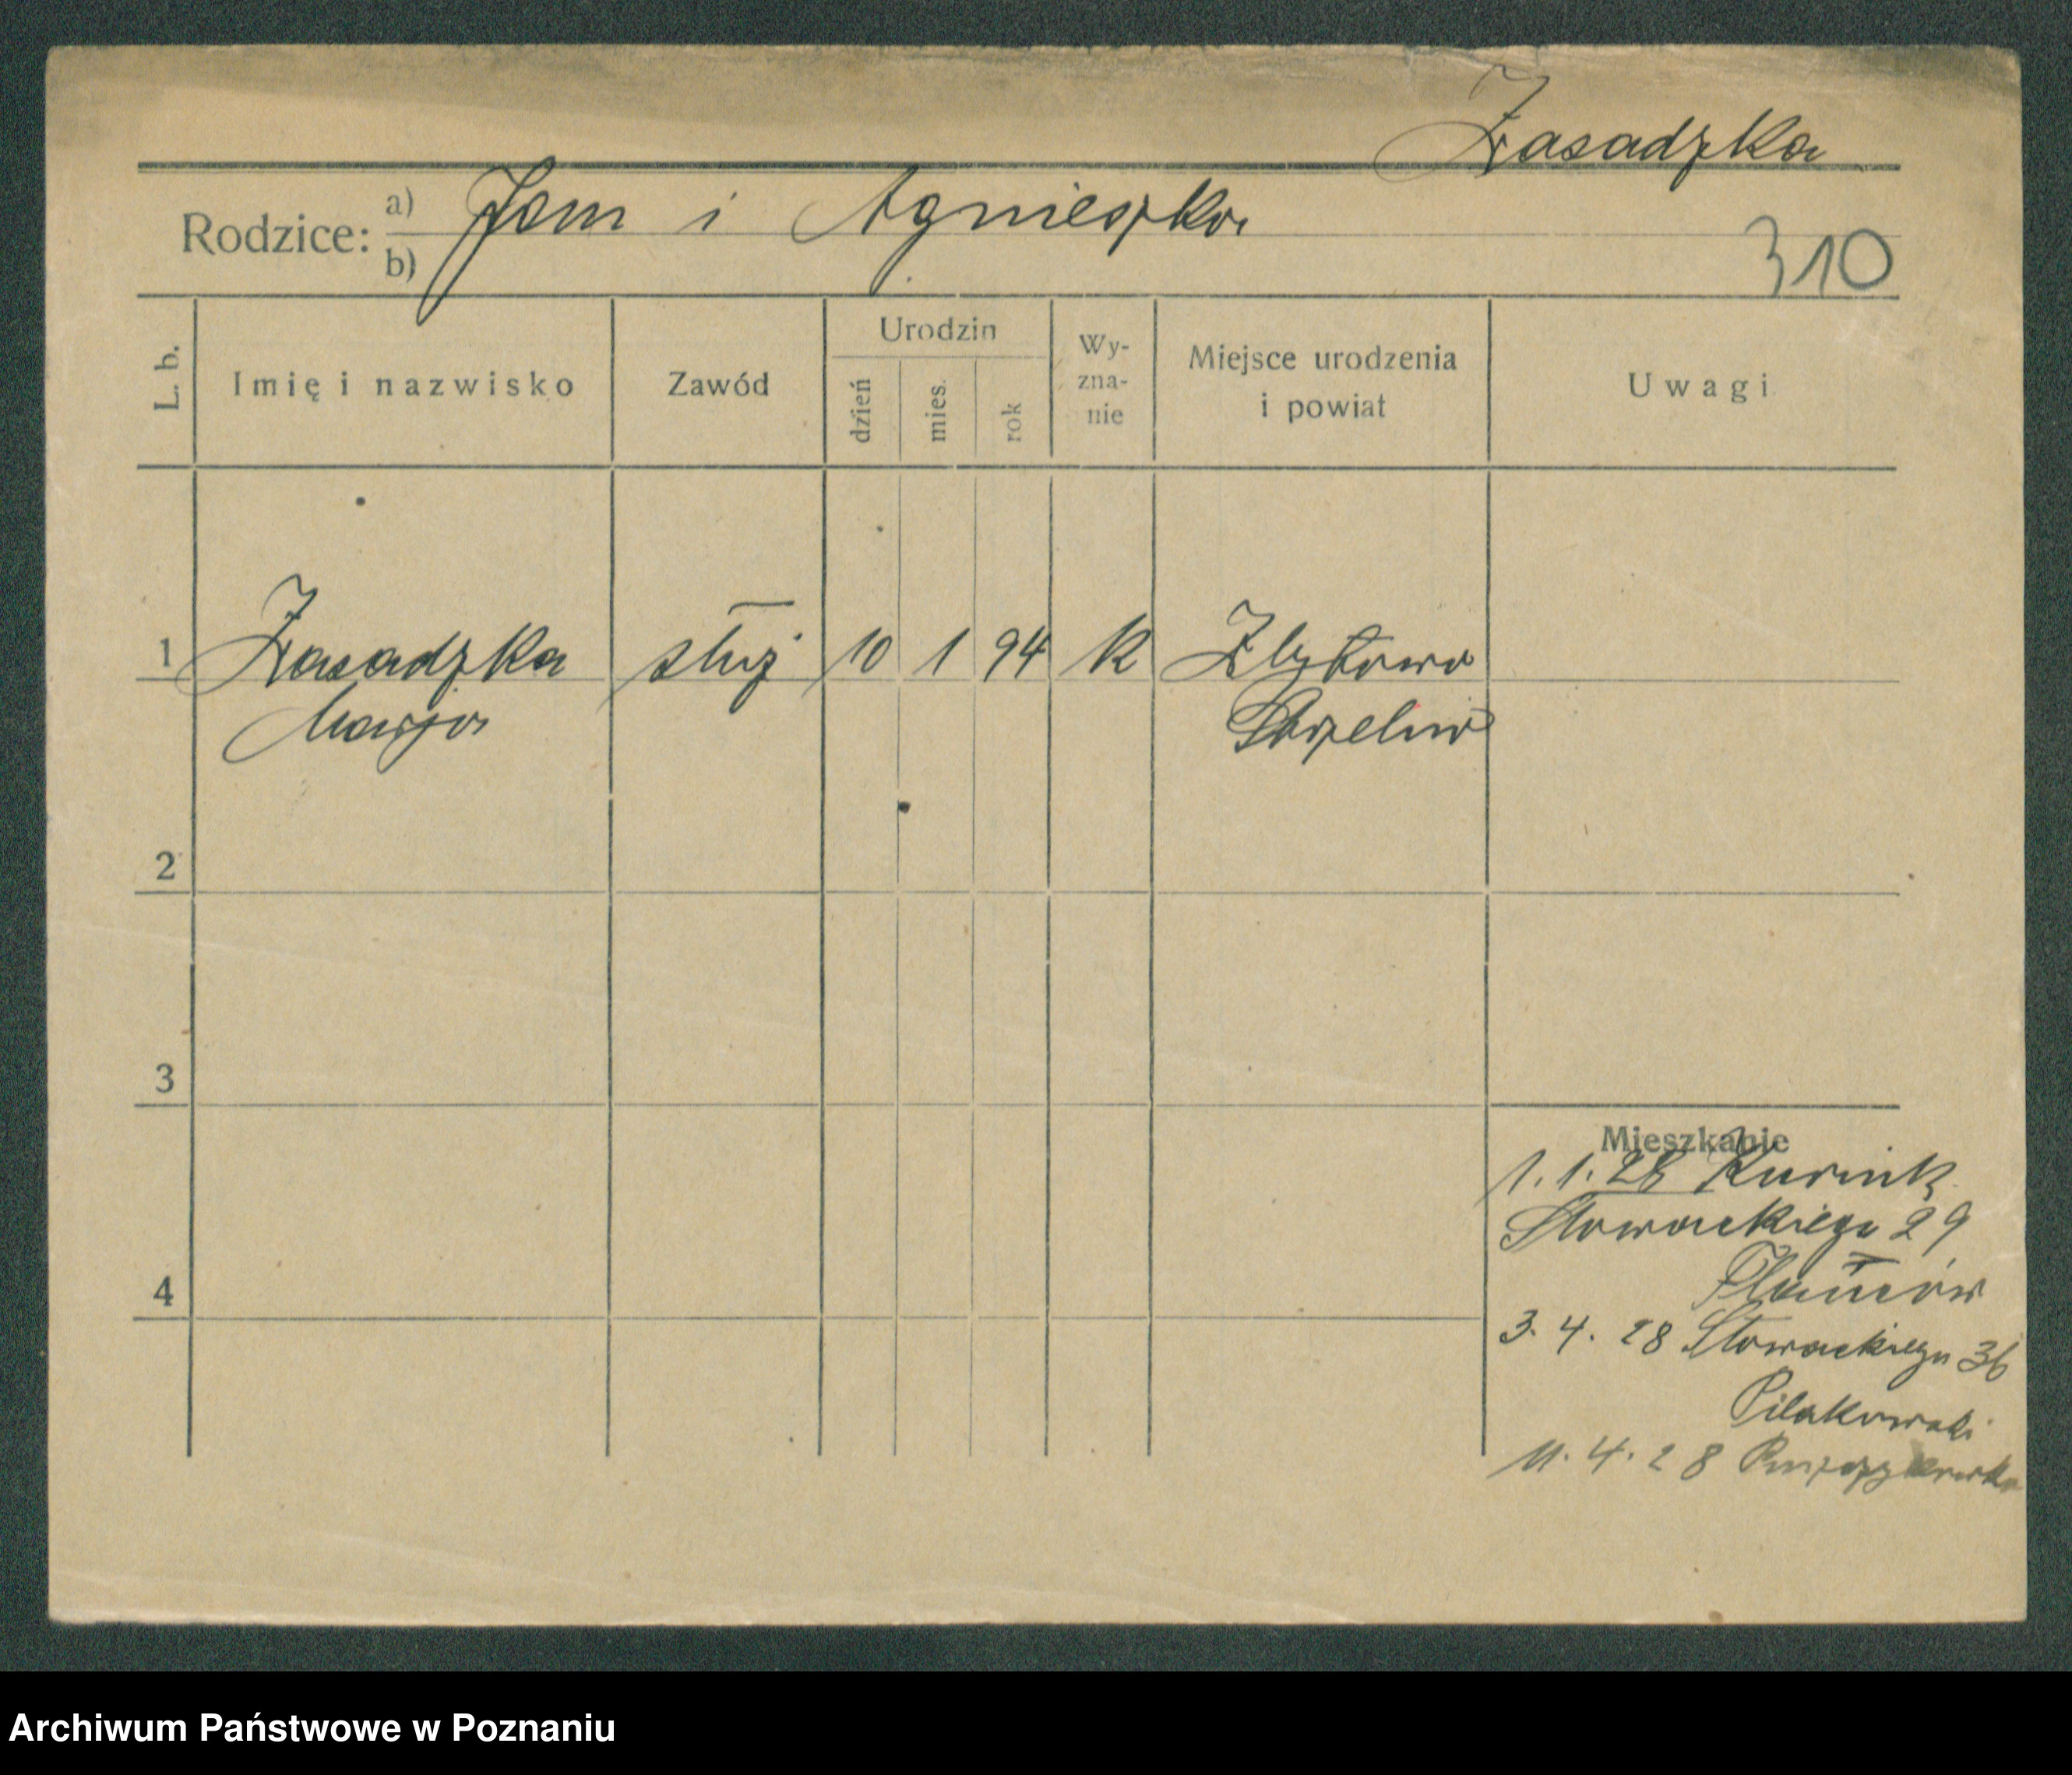 Zasadzka
Rodzice: a) Jan i Agnieszka
b)
310
L. b. Imię i nazwisko Zawód Urodzin dzień mies. rok Wy-zna-nie Miejsce urodzenia i powiat Uwagi
1 Zasadzka służ 10 1 94 K
Marja Strzelno
2
3
4
Mieszkanie
1.1.28 Kurnik
Słowackiego 29
3. 4. 28 Słowackiego 36
Pilakowski
11. 4. 28
Archiwum Państwowe w Poznaniu